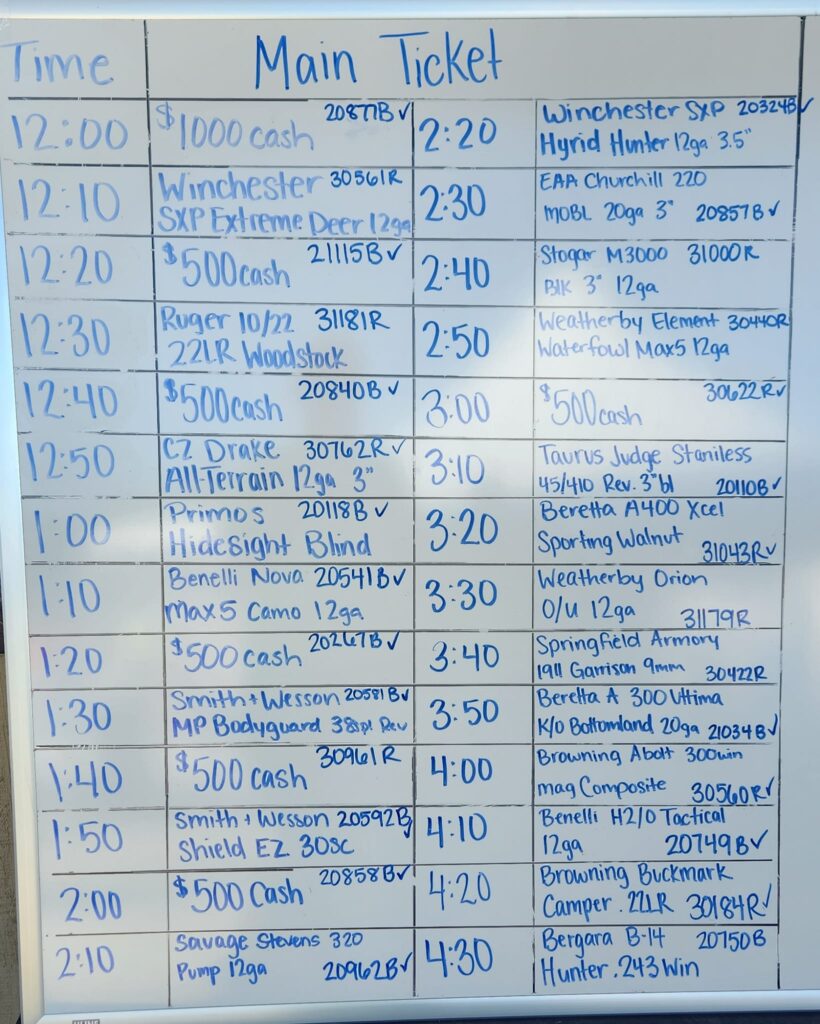 Time
Main Ticket
12:00
$1000 cash 20877B ✓
12:10
Winchester 30561R
SXP Extreme Deer 12ga
12:20
$500 cash 21115B ✓
12:30
Ruger 10/22 31181R
22LR Woodstock
12:40
$500 cash 20840B ✓
12:50
CZ Drake 30762R ✓
All-Terrain 12ga 3"
1:00
Primos 20118B ✓
Hidesight Blind
1:10
Benelli Nova 20541B ✓
Max5 Camo 12ga
1:20
$500 cash 20267B ✓
1:30
Smith + Wesson 20581B ✓
MP Bodyguard 38spl Rev
1:40
$500 cash 30961R
1:50
Smith + Wesson 20592B
Shield EZ 30SC
2:00
$500 Cash 20858B ✓
2:10
Savage Stevens 320
Pump 12ga 20962B ✓
2:20
Winchester SXP 20324B ✓
Hyrid Hunter 12ga 3.5"
2:30
EAA Churchill 220
MOBL 20ga 3" 20857B ✓
2:40
Stogar M3000 31000R
Blk 3" 12ga
2:50
Weatherby Element 30440R
Waterfowl Max5 12ga
3:00
$500 cash 30622R ✓
3:10
Taurus Judge Staniless
45/410 Rev. 3"bl 20110B ✓
3:20
Beretta A400 Xcel
Sporting Walnut 31043R ✓
3:30
Weatherby Orion
O/U 12ga 31179R
3:40
Springfield Armory
1911 Garrison 9mm 30422R
3:50
Beretta A 300 Ultima
K/O Bottomland 20ga 21034B ✓
4:00
Browning Abolt 300win
mag Composite 30560R ✓
4:10
Benelli H2/O Tactical
12ga 20749B ✓
4:20
Browning Buckmark
Camper .22LR 30184R ✓
4:30
Bergara B-14 20750B
Hunter .243 Win